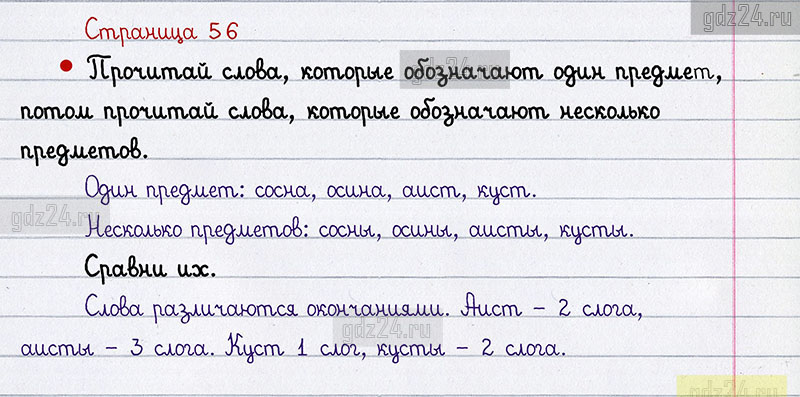 gdz24.ru
Страница 56
• Прочитай слова, которые обозначают один предмет,
gdz24.ru
потом прочитай слова, которые обозначают несколько
предметов.
Один предмет: сосна, осина, аист, куст.
gdz24.ru
Несколько предметов: сосны, осины, аисты, кусты.
Сравни их.
Слова различаются окончаниями. Аист – 2 слога,
gdz24.ru
аисты – 3 слога. Куст 1 слог, кусты – 2 слога.
gdz24.ru